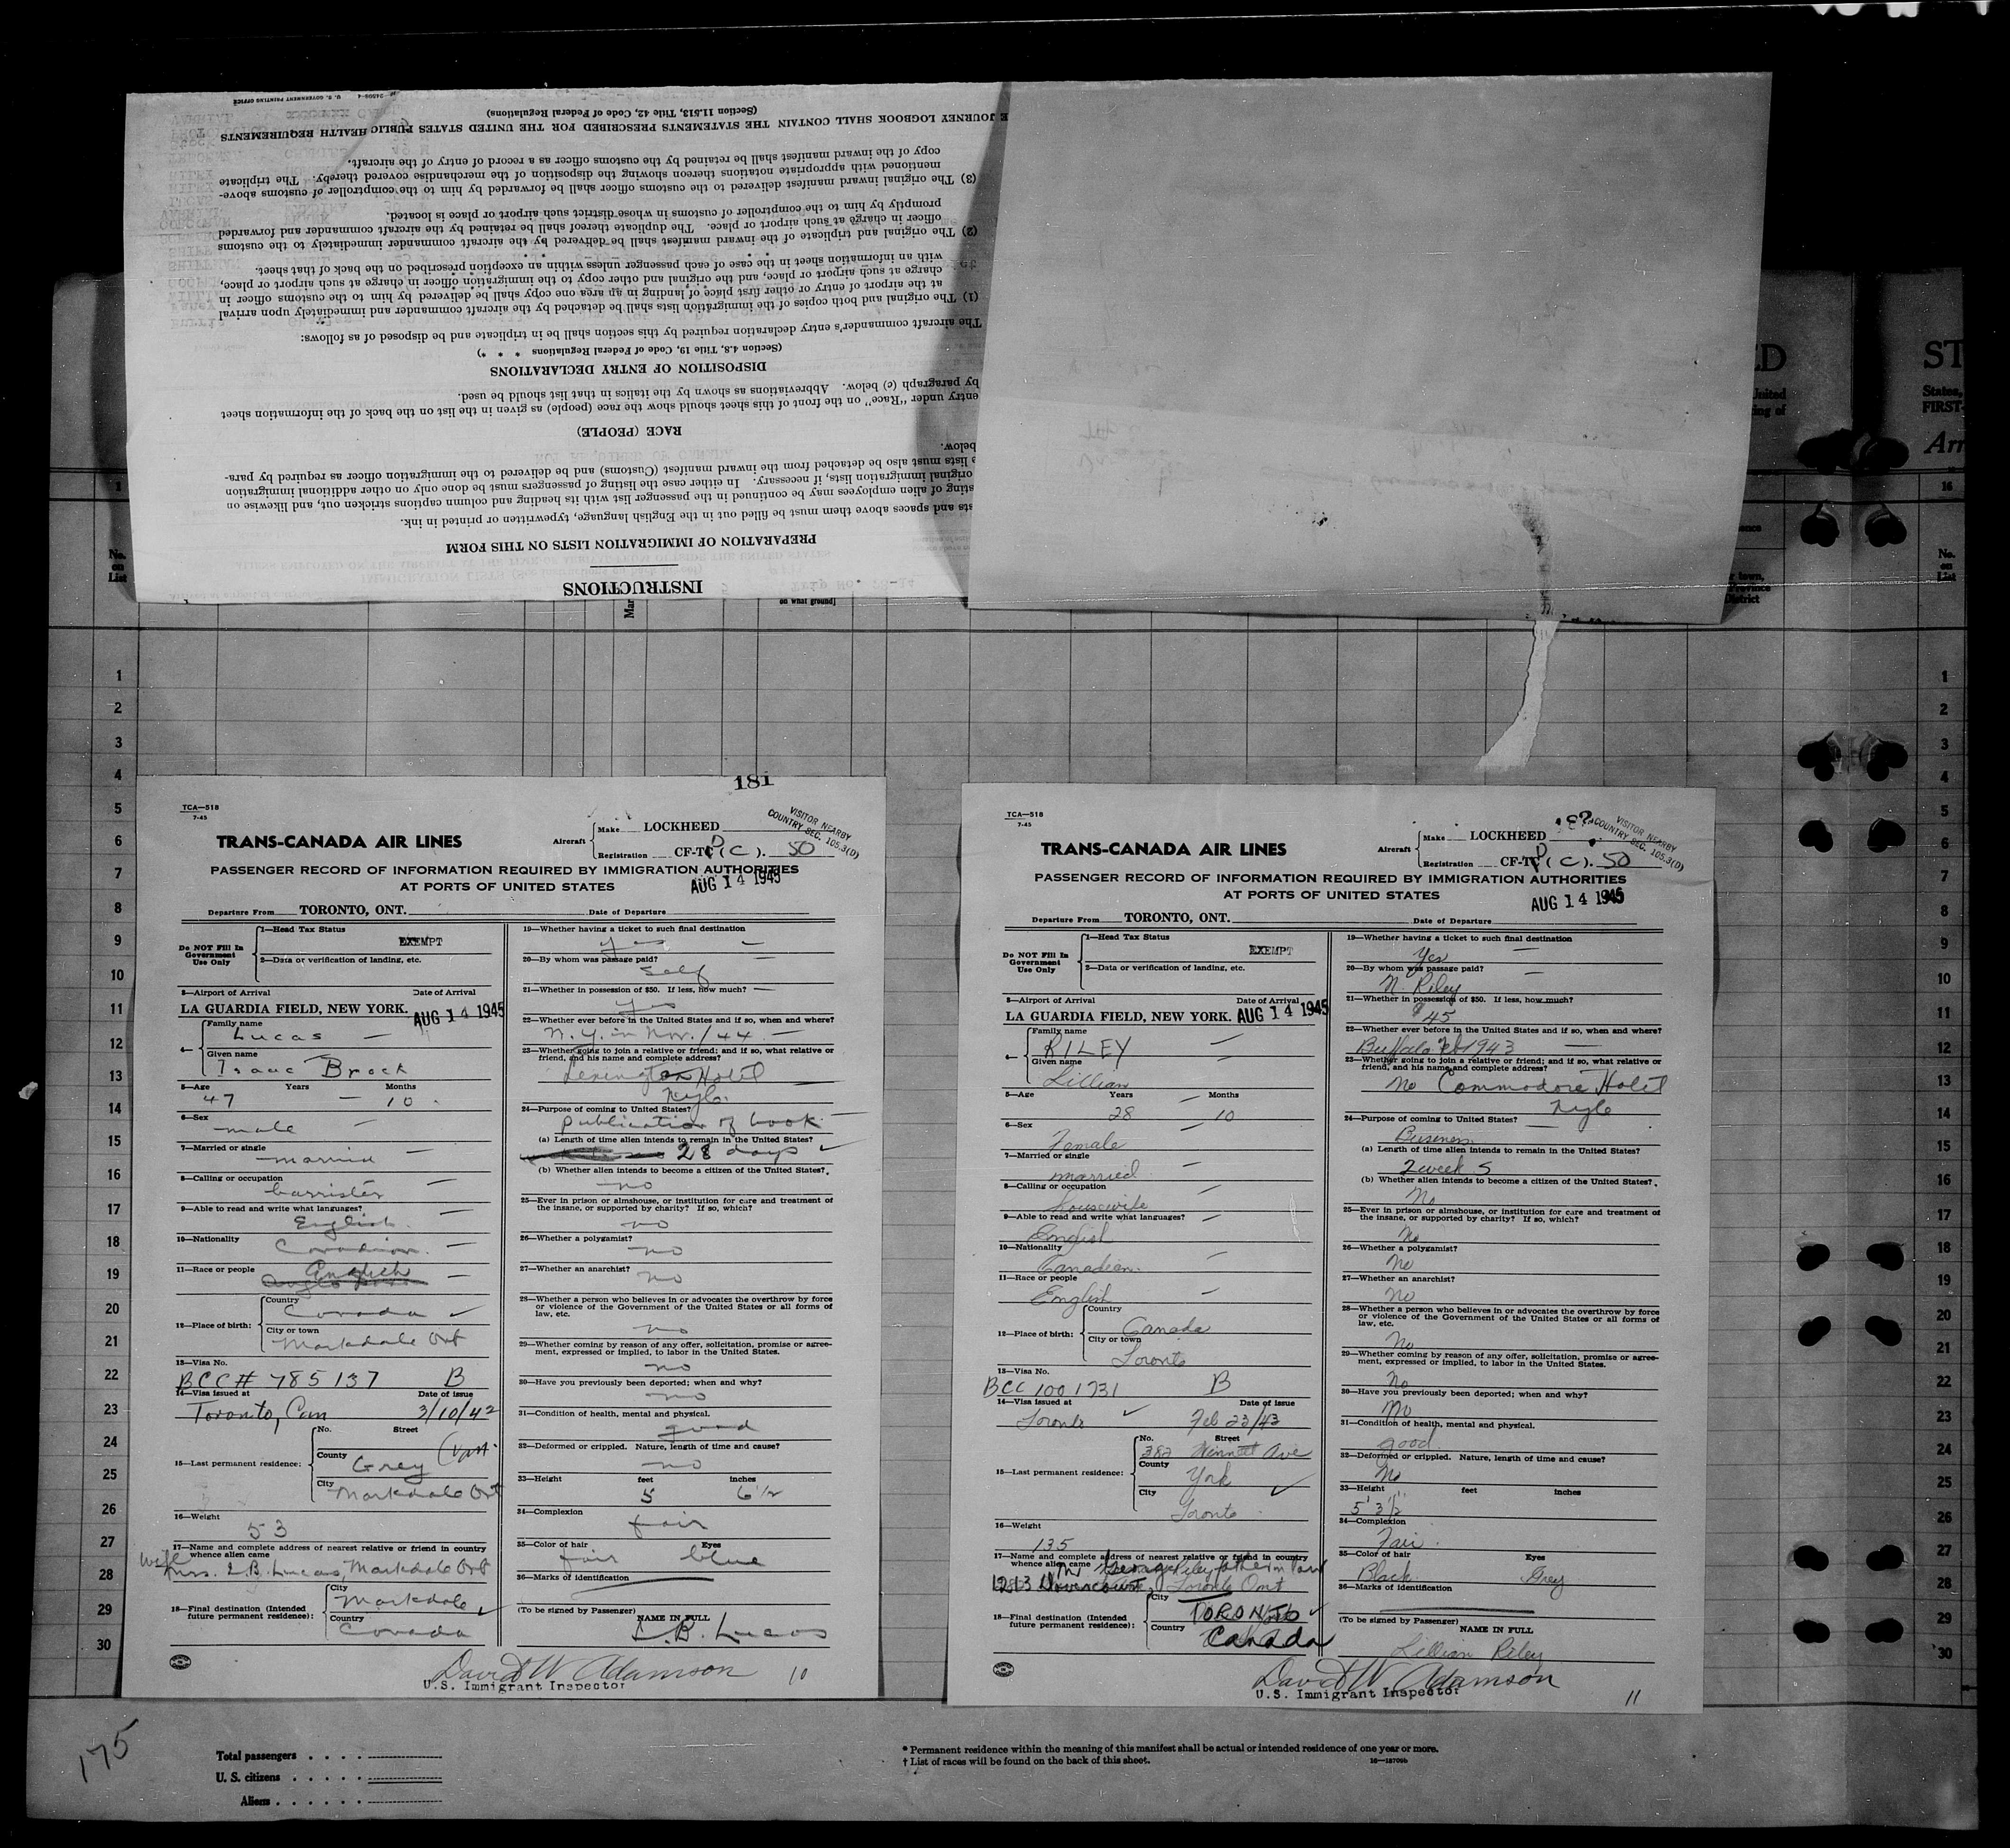 INSTRUCTIONS
PREPARATION OF IMMIGRATION LISTS ON THIS FORM
sts and spaces above them must be filled out in the English language, typewritten or printed in ink.
sting of alien employees may be continued in the passenger list with its heading and column captions stricken out, and likewise on
original immigration lists, if necessary. In either case the listing of passengers must be done only on other additional immigration
e lists must also be detached from the inward manifest (Customs) and be delivered to the immigration officer as required by para-
below.
RACE (PEOPLE)
entry under "Race" on the front of this sheet should show the race (people) as given in the list on the back of the information sheet
by paragraph (c) below. Abbreviations as shown by the italics in that list should be used.
DISPOSITION OF ENTRY DECLARATIONS
(Section 4.8, Title 19, Code of Federal Regulations * * *)
The aircraft commander's entry declaration required by this section shall be in triplicate and be disposed of as follows:
(1) The original and both copies of the immigration lists shall be detached by the aircraft commander and immediately upon arrival
at the airport of entry or other first place of landing in an area one copy shall be delivered by him to the customs officer in
charge at such airport or place, and the original and other copy to the immigration officer in charge at such airport or place,
with an information sheet in the case of each passenger unless within an exception prescribed on the back of that sheet.
(2) The original and triplicate of the inward manifest shall be delivered by the aircraft commander immediately to the customs
officer in charge at such airport or place. The duplicate thereof shall be retained by the aircraft commander and forwarded
promptly by him to the comptroller of customs in whose district such airport or place is located.
(3) The original inward manifest delivered to the customs officer shall be forwarded by him to the comptroller of customs above-
mentioned with appropriate notations thereon showing the disposition of the merchandise covered thereby. The triplicate
copy of the inward manifest shall be retained by the customs officer as a record of entry of the aircraft.
E JOURNEY LOGBOOK SHALL CONTAIN THE STATEMENTS PRESCRIBED FOR THE UNITED STATES PUBLIC HEALTH REQUIREMENTS
(Section 11.513, Title 42, Code of Federal Regulations)
U. S. GOVERNMENT PRINTING OFFICE
on what ground]
No. on List
1
2
3
4
5
6
7
8
9
10
11
12
13
14
15
16
17
18
19
20
21
22
23
24
25
26
27
28
29
30
181
TCA—518
7-45
VISITOR NEARBY
COUNTRY SEC. 105.3(D)
TRANS-CANADA AIR LINES
Aircraft Make LOCKHEED
Registration CF-T P(C). 50
PASSENGER RECORD OF INFORMATION REQUIRED BY IMMIGRATION AUTHORITIES
AT PORTS OF UNITED STATES
AUG 14 1945
Departure From TORONTO, ONT. Date of Departure
Do NOT Fill In Government Use Only
1—Head Tax Status EXEMPT
2—Data or verification of landing, etc.
3—Airport of Arrival Date of Arrival
LA GUARDIA FIELD, NEW YORK. AUG 14 1945
4— Family name Lucas
Given name Isaac Brock
5—Age Years Months
47 10
6—Sex male
7—Married or single married
8—Calling or occupation barrister
9—Able to read and write what languages? English
10—Nationality Canadian
11—Race or people English
12—Place of birth: Country Canada
City or town Markdale Ont
13—Visa No.
BCC# 785137 B
14—Visa issued at Date of issue
Toronto, Can 3/10/42
15—Last permanent residence: No. Street
County Grey
City Markdale Ont
16—Weight 53
17—Name and complete address of nearest relative or friend in country whence alien came
wife Mrs. I.B. Lucas, Markdale Ont
18—Final destination (Intended future permanent residence): City Markdale
Country Canada
19—Whether having a ticket to such final destination
yes
20—By whom was passage paid?
self
21—Whether in possession of $50. If less, how much?
yes
22—Whether ever before in the United States and if so, when and where?
N.Y. in Nov./44
23—Whether going to join a relative or friend; and if so, what relative or friend, and his name and complete address?
Lexington Hotel
24—Purpose of coming to United States?
Publication of book
(a) Length of time alien intends to remain in the United States?
28 days
(b) Whether alien intends to become a citizen of the United States?
no
25—Ever in prison or almshouse, or institution for care and treatment of the insane, or supported by charity? If so, which?
no
26—Whether a polygamist?
no
27—Whether an anarchist?
no
28—Whether a person who believes in or advocates the overthrow by force or violence of the Government of the United States or all forms of law, etc.
no
29—Whether coming by reason of any offer, solicitation, promise or agreement, expressed or implied, to labor in the United States.
no
30—Have you previously been deported; when and why?
no
31—Condition of health, mental and physical.
good
32—Deformed or crippled. Nature, length of time and cause?
no
33—Height feet inches
5 6 1/2
34—Complexion
fair
35—Color of hair Eyes
fair blue
36—Marks of identification
(To be signed by Passenger) NAME IN FULL
I.B. Lucas
David W Adamson 10
U.S. Immigrant Inspector
TCA—518
7-45
VISITOR NEARBY
COUNTRY SEC. 105.3(D)
TRANS-CANADA AIR LINES
Aircraft Make LOCKHEED
Registration CF-T P(C). 50
PASSENGER RECORD OF INFORMATION REQUIRED BY IMMIGRATION AUTHORITIES
AT PORTS OF UNITED STATES
AUG 14 1945
Departure From TORONTO, ONT. Date of Departure
Do NOT Fill In Government Use Only
1—Head Tax Status EXEMPT
2—Data or verification of landing, etc.
3—Airport of Arrival Date of Arrival
LA GUARDIA FIELD, NEW YORK. AUG 14 1945
4— Family name RILEY
Given name Lillian
5—Age Years Months
28 10
6—Sex Female
7—Married or single married
8—Calling or occupation housewife
9—Able to read and write what languages? English
10—Nationality Canadian
11—Race or people English
12—Place of birth: Country Canada
City or town Toronto
13—Visa No.
BCC 1001731 B
14—Visa issued at Date of issue
Toronto Feb 23/43
15—Last permanent residence: No. Street
382 Winnett Ave
County York
City Toronto
16—Weight 135
17—Name and complete address of nearest relative or friend in country whence alien came
Mr George Riley father in law
1213 Dovercourt, Toronto Ont
18—Final destination (Intended future permanent residence): City TORONTO
Country Canada
19—Whether having a ticket to such final destination
Yes
20—By whom was passage paid?
N. Riley
21—Whether in possession of $50. If less, how much?
$45
22—Whether ever before in the United States and if so, when and where?
Buffalo Feb 1943
23—Whether going to join a relative or friend; and if so, what relative or friend, and his name and complete address?
No Commodore Hotel
24—Purpose of coming to United States?
Business
(a) Length of time alien intends to remain in the United States?
2 weeks
(b) Whether alien intends to become a citizen of the United States?
No
25—Ever in prison or almshouse, or institution for care and treatment of the insane, or supported by charity? If so, which?
No
26—Whether a polygamist?
No
27—Whether an anarchist?
No
28—Whether a person who believes in or advocates the overthrow by force or violence of the Government of the United States or all forms of law, etc.
No
29—Whether coming by reason of any offer, solicitation, promise or agreement, expressed or implied, to labor in the United States.
No
30—Have you previously been deported; when and why?
No
31—Condition of health, mental and physical.
good
32—Deformed or crippled. Nature, length of time and cause?
No
33—Height feet inches
5' 3 1/2"
34—Complexion
Fair
35—Color of hair Eyes
Black Grey
36—Marks of identification
(To be signed by Passenger) NAME IN FULL
Lillian Riley
David W Adamson 11
U.S. Immigrant Inspector
175
Total passengers
U. S. citizens
Aliens
* Permanent residence within the meaning of this manifest shall be actual or intended residence of one year or more.
† List of races will be found on the back of this sheet.